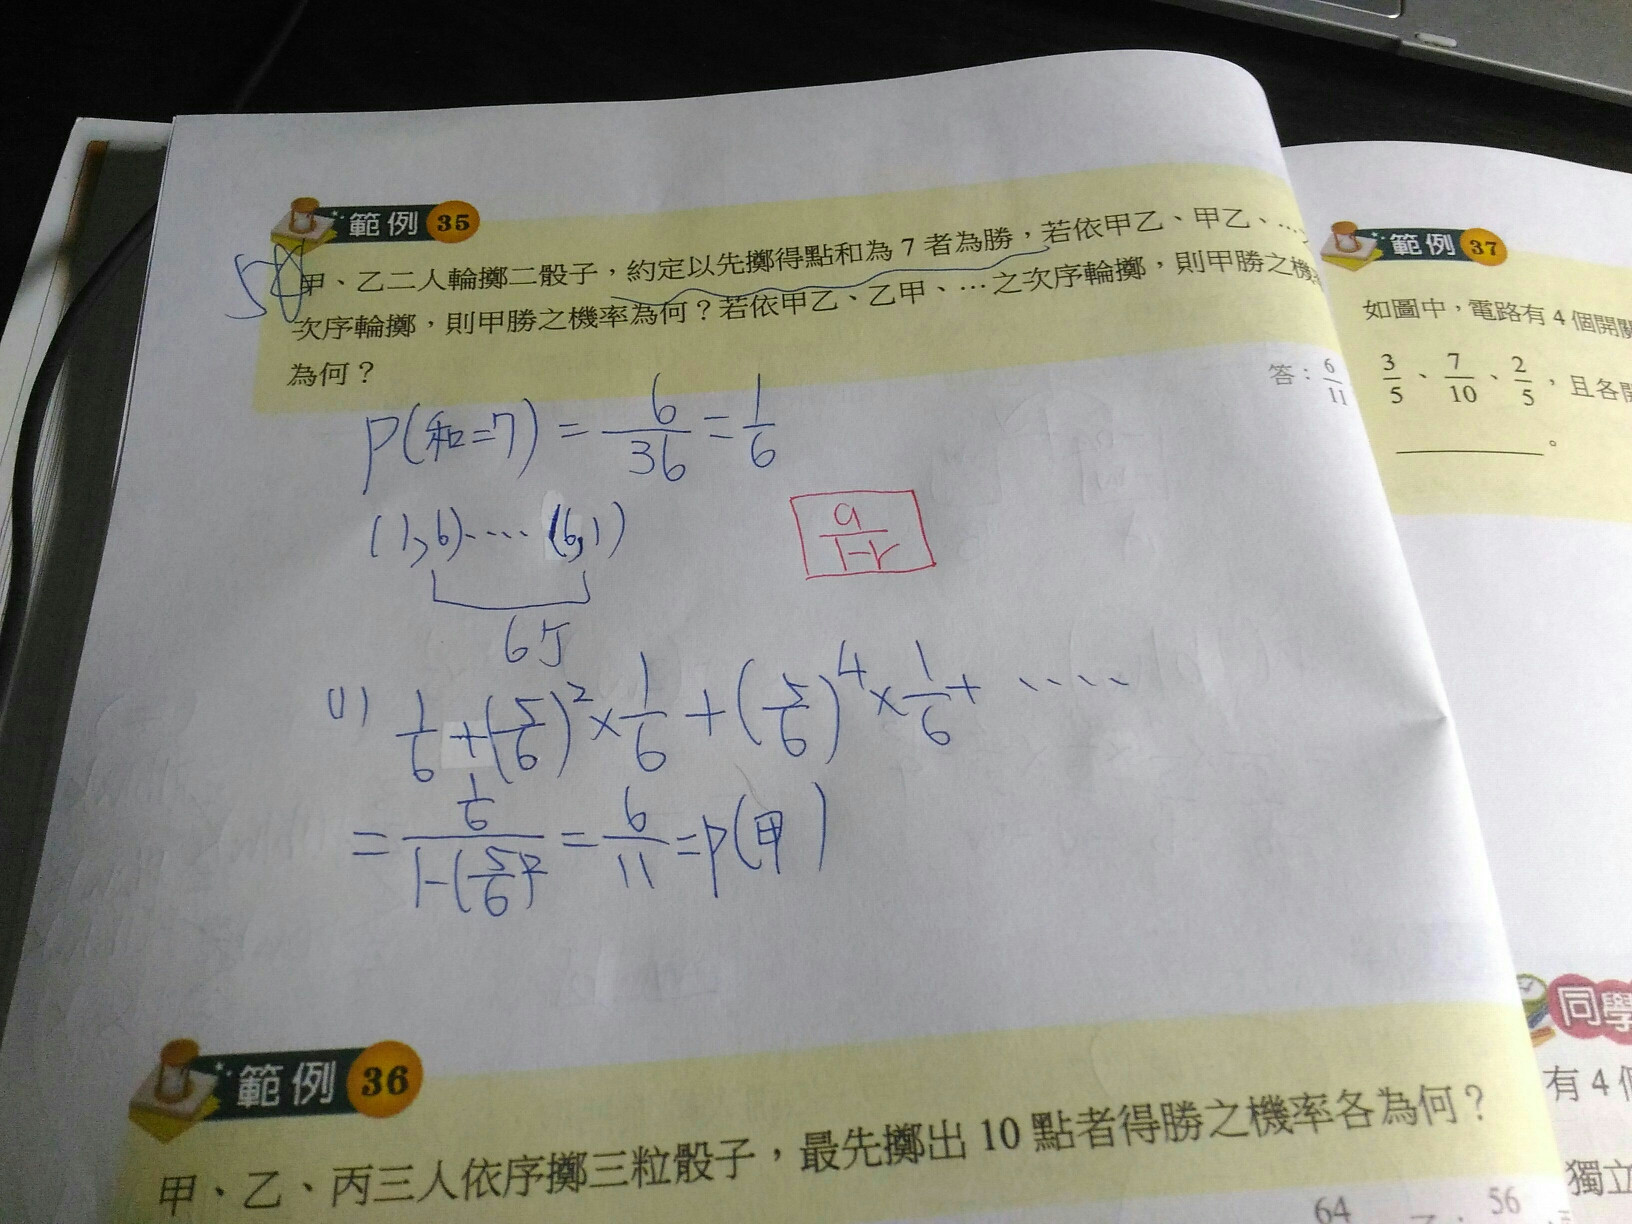 範例 35
50
甲、乙二人輪擲二骰子，約定以先擲得點和為 7 者為勝，若依甲乙、甲乙、…
次序輪擲，則甲勝之機率為何？若依甲乙、乙甲、…之次序輪擲，則甲勝之機
為何？
答：6/11
P(和=7) = 6/36 = 1/6
(1,6)‥‥(6,1)
a/1-r
(1) 1/6 + (5/6)^2 × 1/6 + (5/6)^4 × 1/6 + ‥‥
= 1/6 / 1-(5/6)^2 = 6/11 = P(甲)
範例 36
甲、乙、丙三人依序擲三粒骰子，最先擲出 10 點者得勝之機率各為何？
64
56
範例 37
如圖中，電路有 4 個開關
3/5、7/10、2/5，且各開
。
同學
有 4 個
獨立